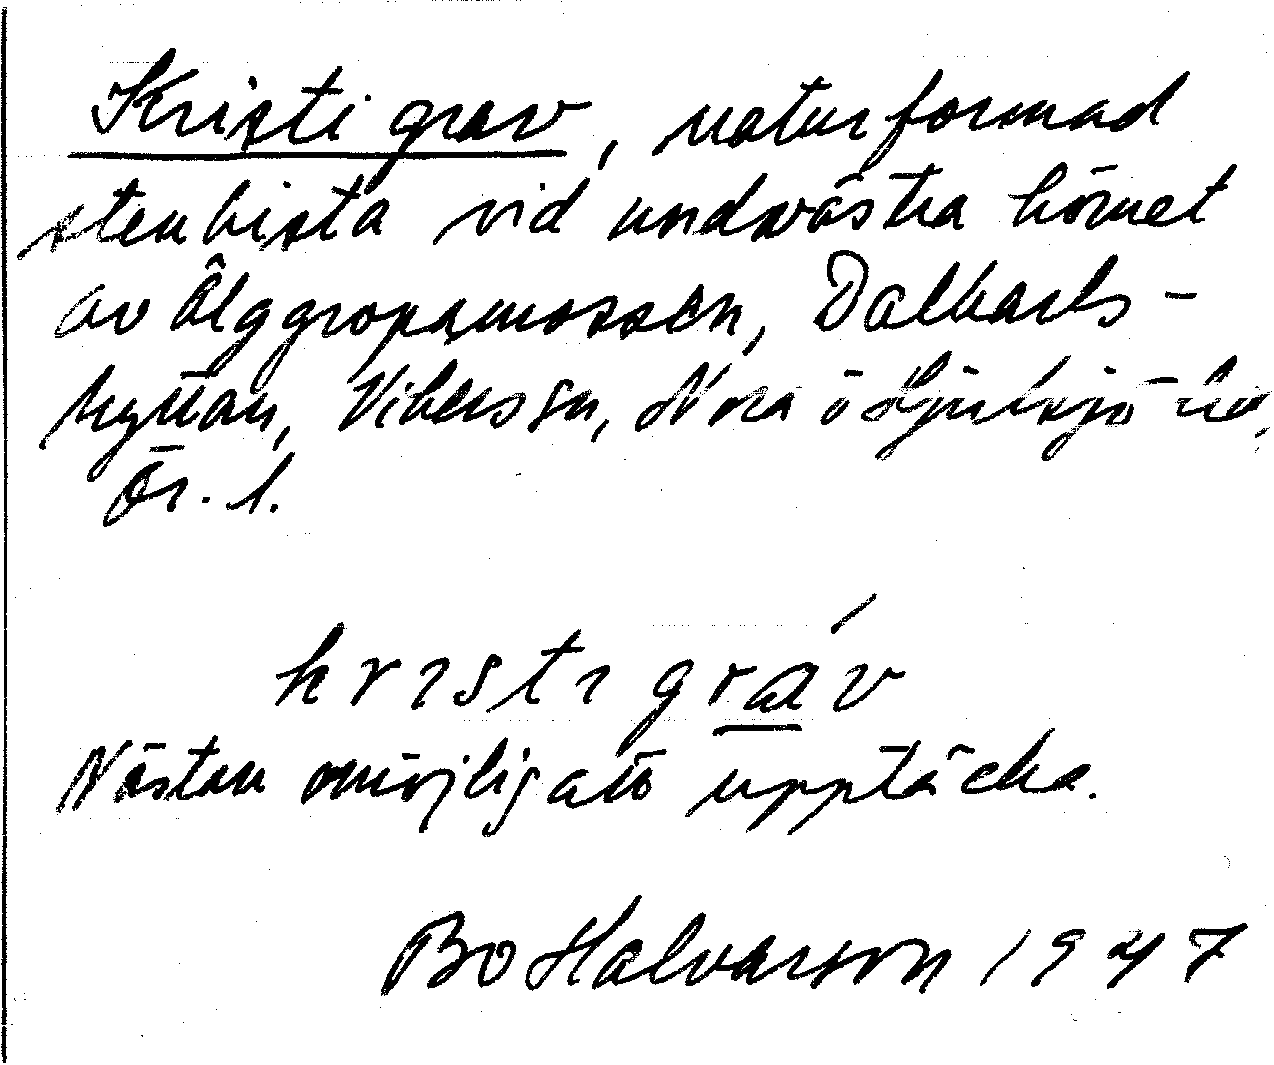 Kristi grav, naturformad
stenkista vid nordvästra hörnet
av Älggropamossen, Dalkarls-
hyttan, Vikers sn, Nora o Hjulsjö
Ör. l.
kristi gráv
Nästan omöjlig att upptäcka.
Bo Halvarson 1947